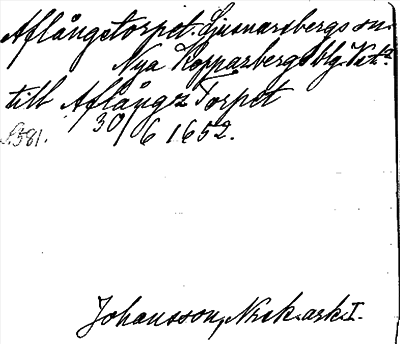 Aflångstorpet. Ljusnarsbergs sn.
Nya Kopparbergs blg. Vstm.
till Aflångs Torpet
30/6 1652.
S. 581.
Johansson, Norsk. ark. I.